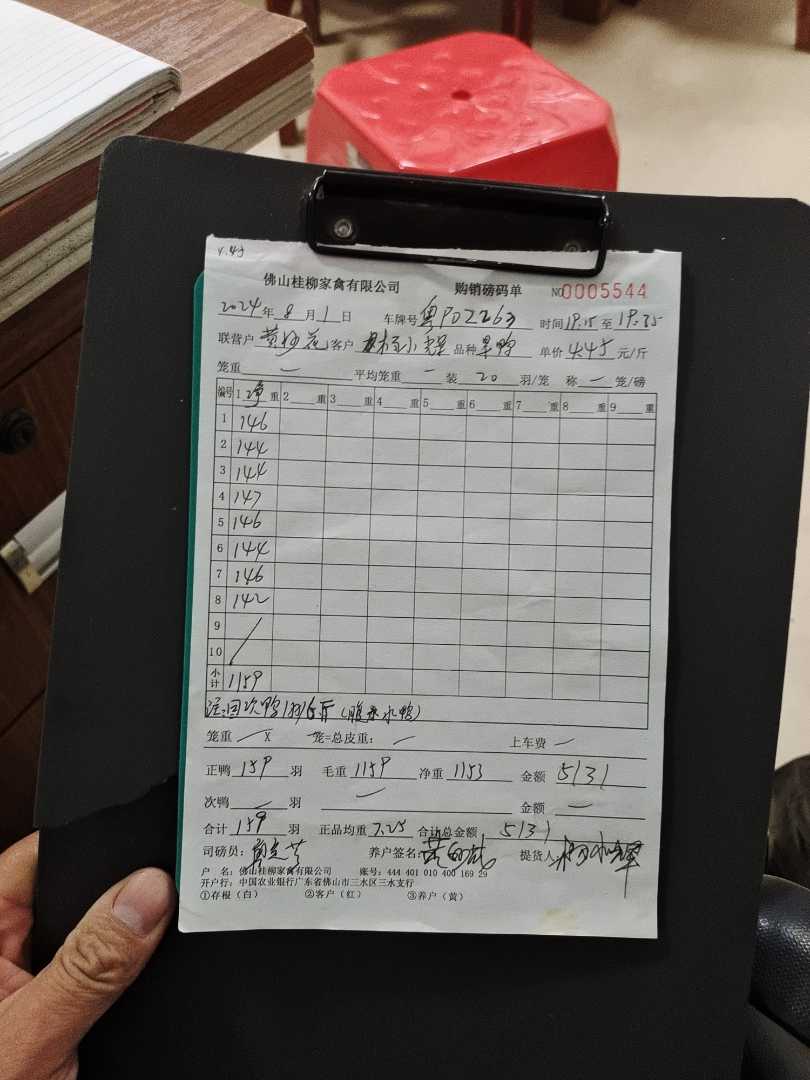 4.45
佛山桂柳家禽有限公司 购销磅码单 NO0005544
2024年8月1日 车牌号 粤P02263 时间 19:15 至 19:35
联营户 黄 花 客户 小 品种 鸭 单价 4.45 元/斤
笼重 — 平均笼重 — 装 20 羽/笼 称 — 笼/磅
编号 1 净 重 2 重 3 重 4 重 5 重 6 重 7 重 8 重 9 重
1 146
2 144
3 144
4 147
5 146
6 144
7 146
8 142
9 /
10
小计 1159
注:回次鸭1羽6斤( 水鸭)
笼重 — X — 笼=总皮重: — 上车费 —
正鸭 159 羽 毛重 1159 净重 1153 金额 5131
次鸭 — 羽 — 金额 —
合计 159 羽 正品均重 7.25 合计总金额 5131
司磅员: 养户签名: 黄 提货人:
户 名:佛山桂柳家禽有限公司 账号:444 401 010 400 169 29
开户行:中国农业银行广东省佛山市三水区三水支行
①存根(白) ②客户(红) ③养户(黄)